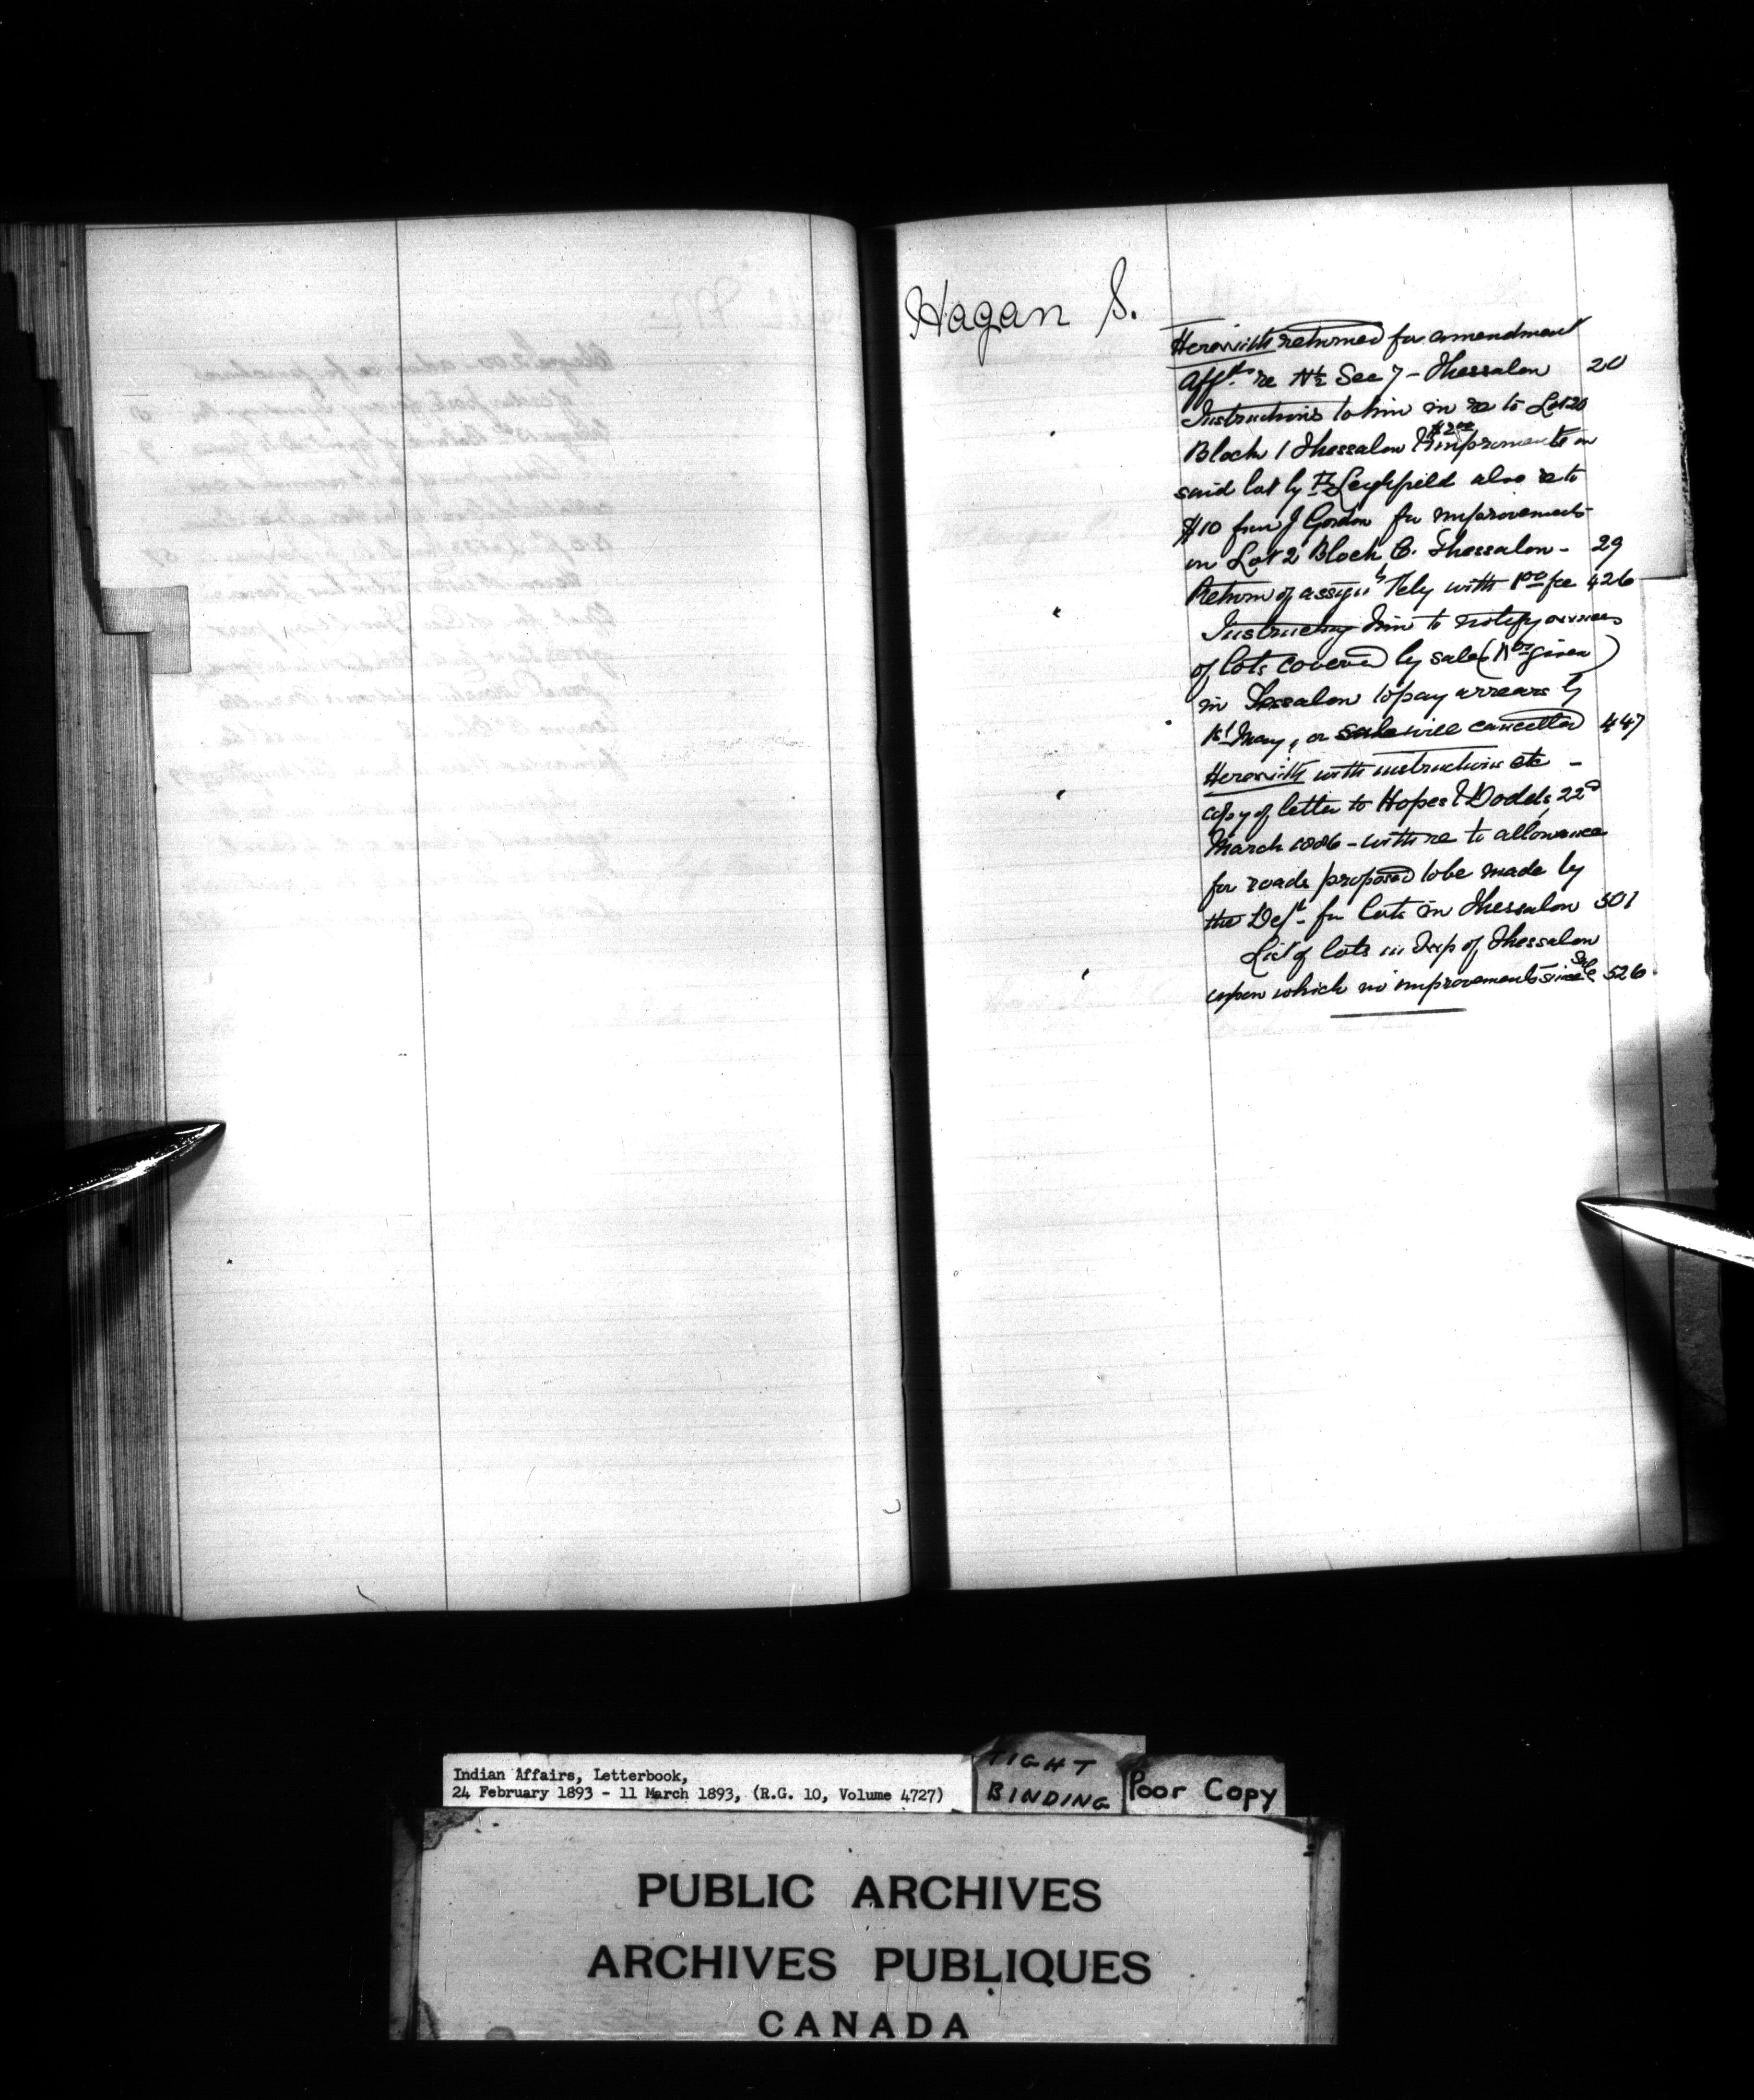 Hagan S.
Herewith returned for amendment
Affts re N½ Sec 7 - Thessalon 20
Instructions to him in re to Lot 20
Block 1 Thessalon & $2.00 improvements on
said lot by Leighfield also re to
$10 from J Gordon for improvements
on Lot 2 Block C. Thessalon - 29
Return of assignt with 1.00 fee 426
Instructing him to notify owners
of lots covered by sales (Nos given)
in Thessalon to pay arrears by
1st May, or sale will cancelled 447
Herewith with instructions etc -
copy of letter to Hopes & Dodds 22d
March 1886 - with re to allowance
for roads proposed to be made by
the Dept. for lots in Thessalon 501
List of lots in Twp of Thessalon
upon which no improvements since Sale 526
Indian Affairs, Letterbook,
24 February 1893 - 11 March 1893, (R.G. 10, Volume 4727)
TIGHT
BINDING
Poor Copy
PUBLIC ARCHIVES
ARCHIVES PUBLIQUES
CANADA